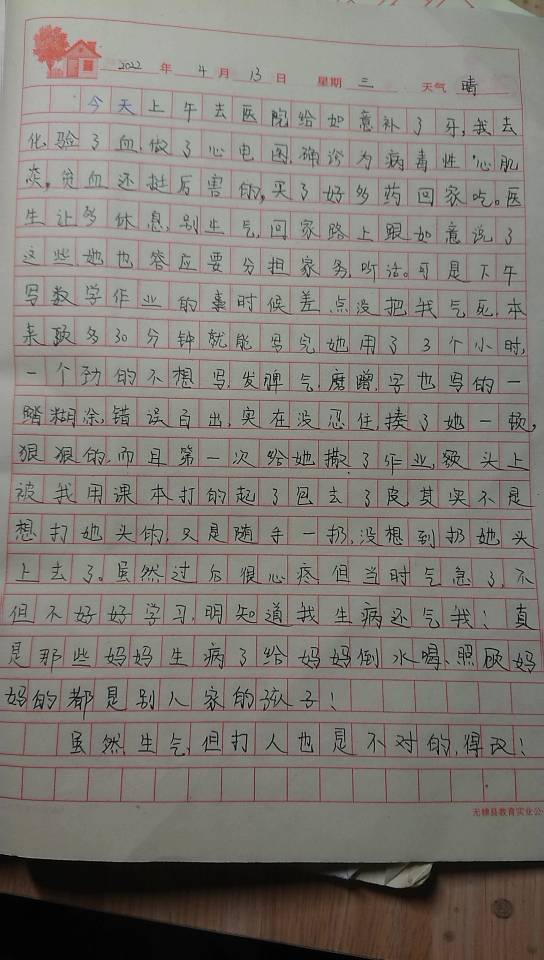 2022 年 4 月 13 日 星期 三 天气 晴
今天上午去医院给如意补了牙,我去
化验了血,做了心电图,确诊为病毒性心肌
炎,贫血还挺厉害的,买了好多药回家吃。医
生让多休息,别生气,回家路上跟如意说了
这些,她也答应要分担家务,听话。可是下午
写数学作业的事时候差点没把我气死,本
来顶多30分钟就能写完她用了3个小时,
一个劲的不想写,发脾气,磨蹭,字也写的一
踏糊涂,错误百出,实在没忍住,揍了她一顿,
狠狠的,而且第一次给她撕了作业,额头上
被我用课本打的起了包去了皮,其实不是
想打她头的,只是随手一扔,没想到扔她头
上去了。虽然过后很心疼但当时气急了,不
但不好好学习,明知道我生病还气我!真
是那些妈妈生病了给妈妈倒水喝、照顾妈
妈的都是别人家的孩子!
虽然生气,但打人也是不对的,得改!
无棣县教育实业公